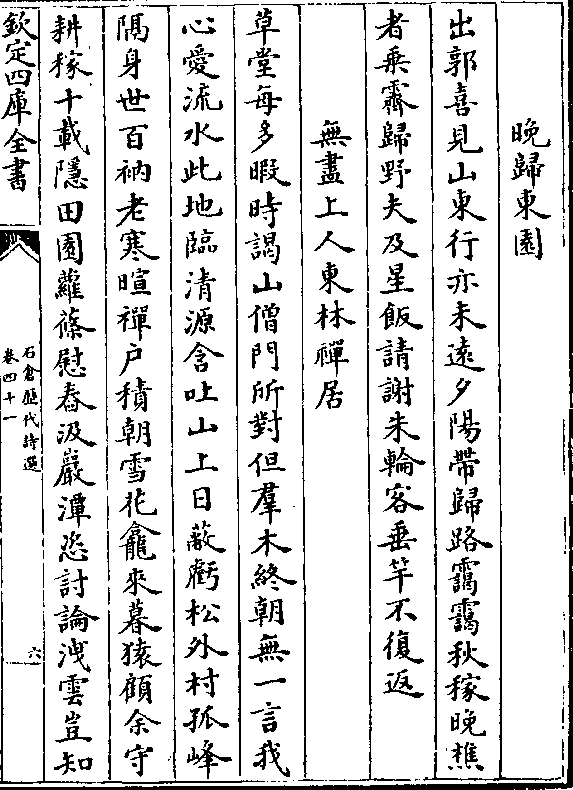 晩歸東園
出郭喜見山東行亦未遠夕陽帶歸路靄靄秋稼晩樵
者乗霽歸野夫及星飯請謝朱輪客垂竿不復返
無盡上人東林禪居
草堂每多暇時謁山僧門所對但羣木終朝無一言我
心愛流水此地臨清源含吐山上日蔽虧松外村孤峰
隅身世百衲老寒暄禪户積朝雪花龕來暮猿顧余守
耕稼十載隱田園蘿蓧慰舂汲巖潭恣討論洩雲豈知
欽定四庫全書
石倉歷代詩選
卷四十一
六